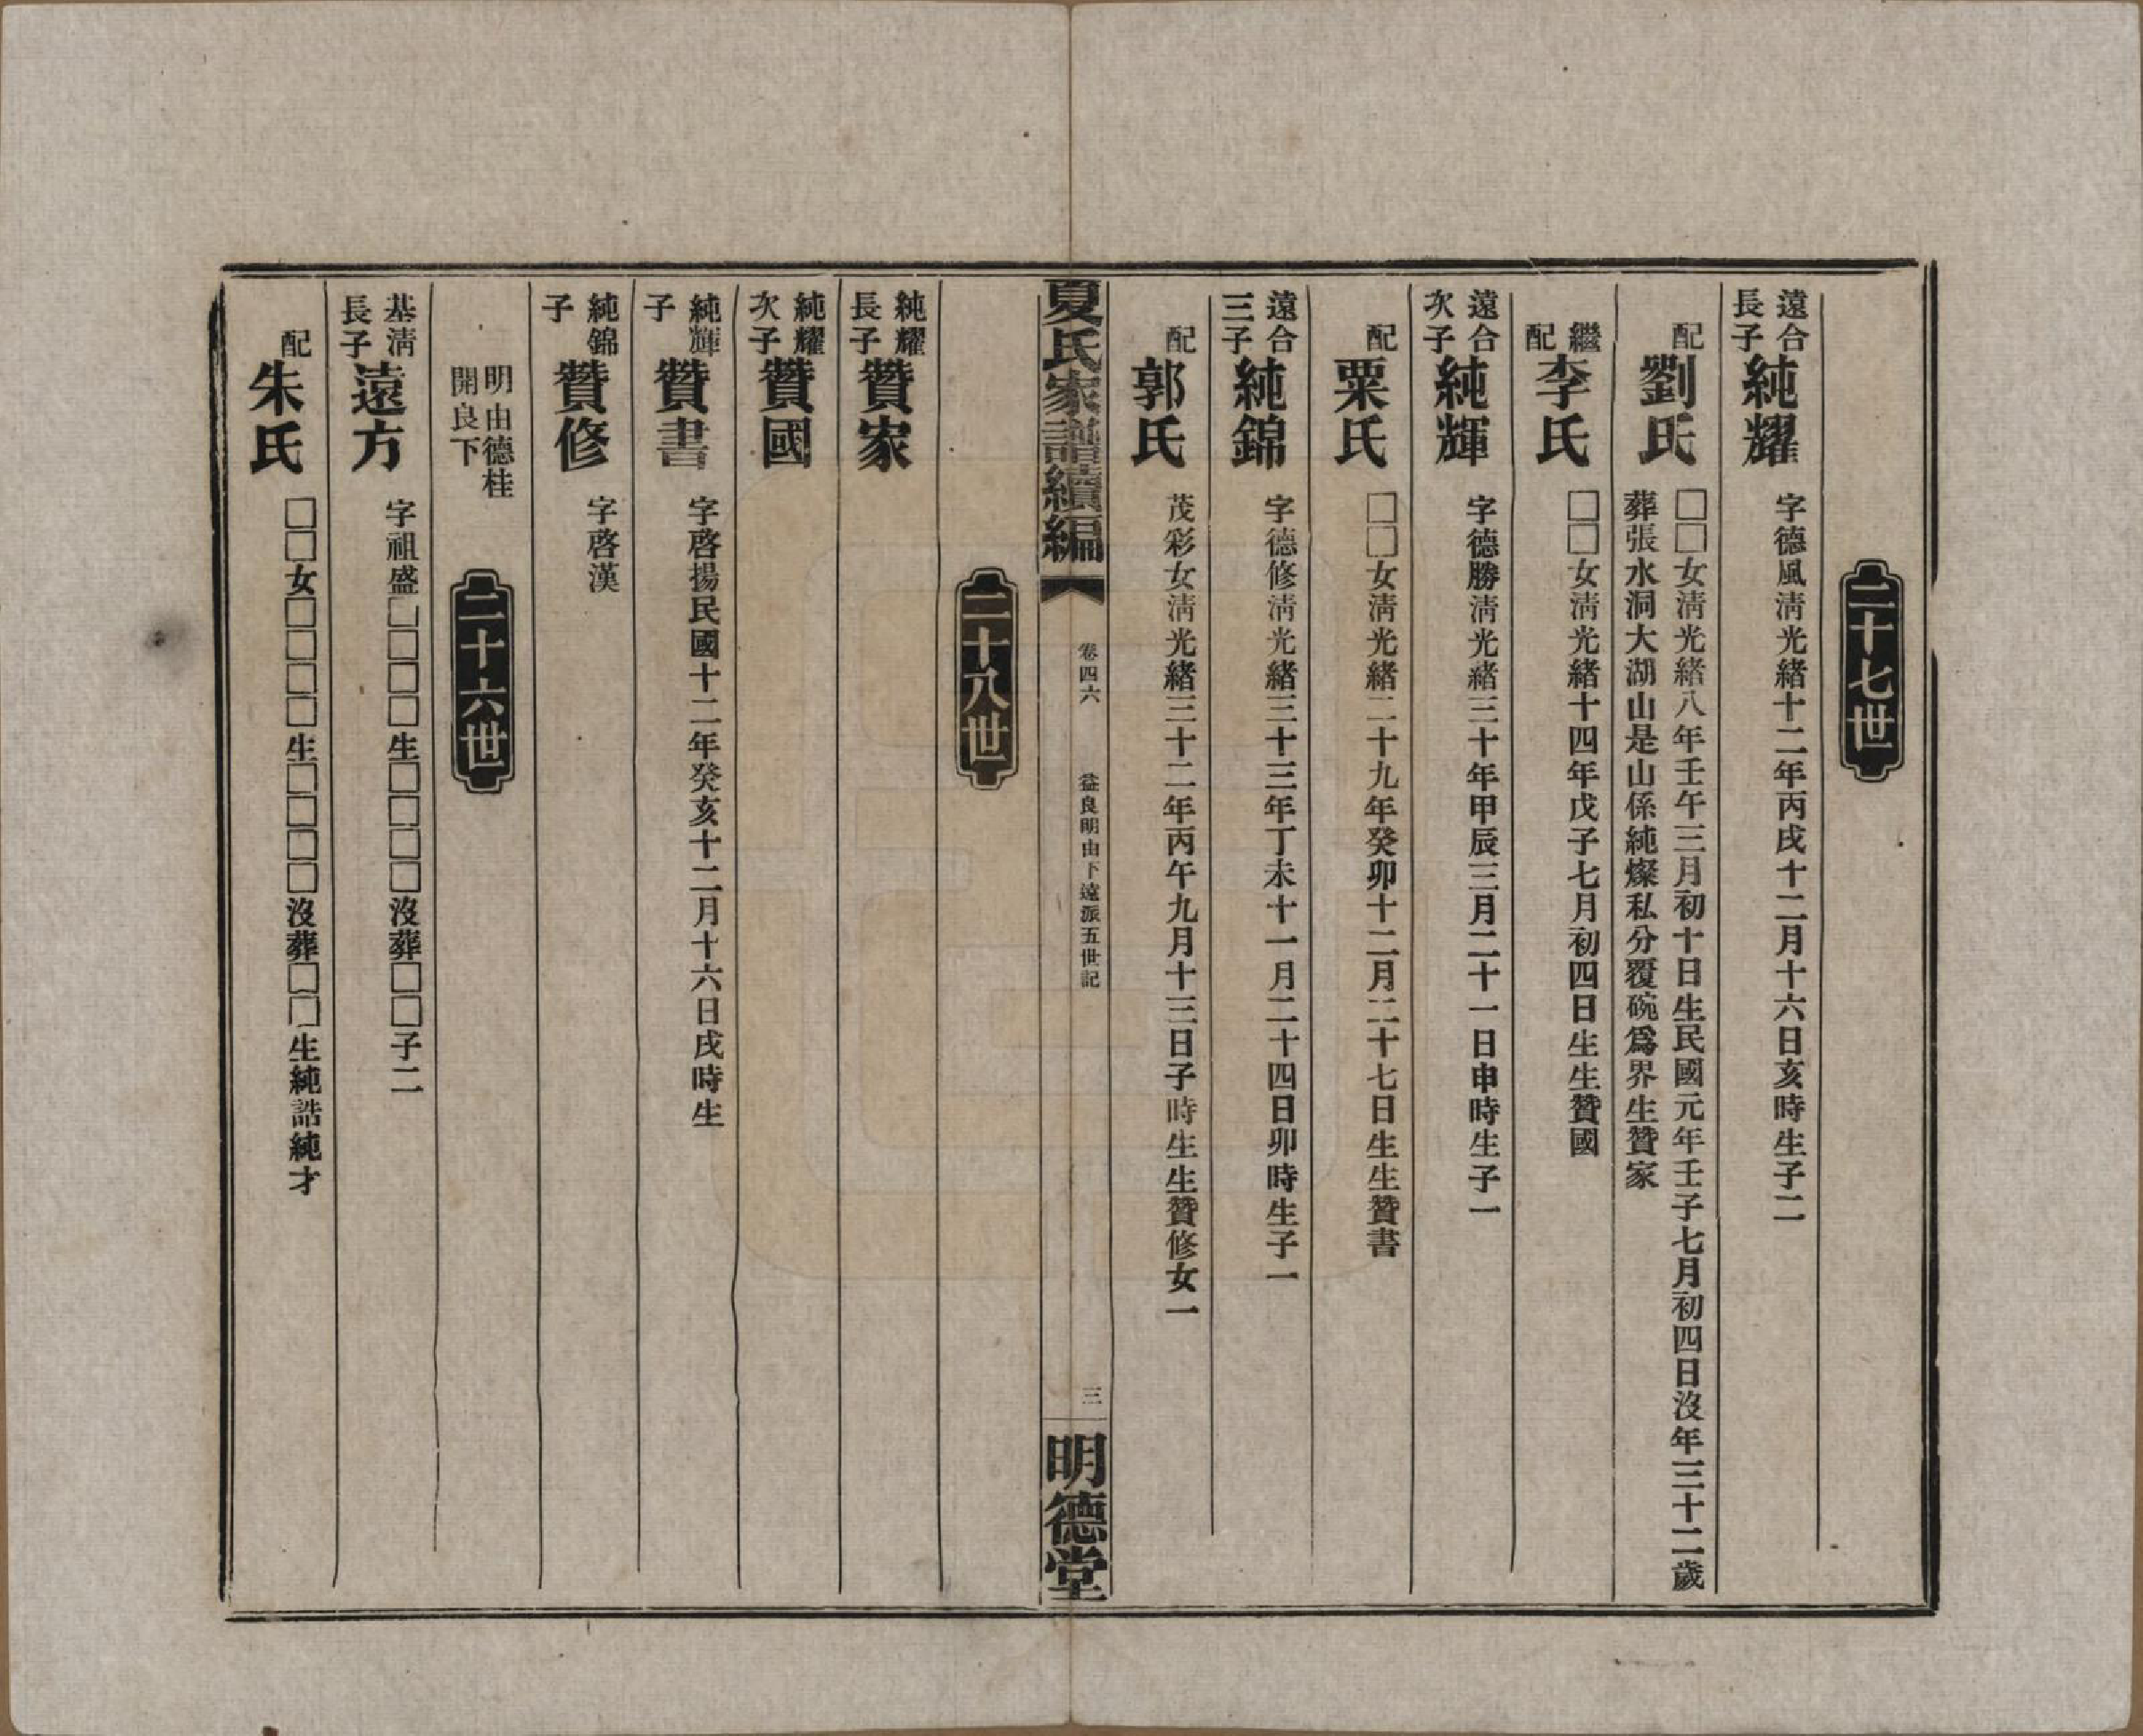 二十七世
遠合
長子
純耀
字德風淸光緒十二年丙戌十二月十六日亥時生子二
配
劉氏
□□女淸光緒八年壬午三月初十日生民國元年壬子七月初四日沒年三十二歲
葬張水洞大湖山是山係純燦私分覆碗爲界生贊家
繼
配
李氏
□□女淸光緒十四年戊子七月初四日生生贊國
遠合
次子
純輝
字德勝淸光緒三十年甲辰三月二十一日申時生子一
配
粟氏
□□女淸光緒二十九年癸卯十二月二十七日生生贊書
遠合
三子
純錦
字德修淸光緒三十三年丁未十一月二十四日卯時生子一
配
郭氏
茂彩女淸光緒三十二年丙午九月十三日子時生生贊修女一
夏氏家譜續編
卷四六
益良明由下遠派五世記
三
明德堂
二十八世
純耀
長子
贊家
純耀
次子
贊國
純輝
子
贊書
字啓揚民國十二年癸亥十二月十六日戌時生
純錦
子
贊修
字啓漢
明由德桂
開良下
二十六世
基淸
長子
遠方
字祖盛□□□□生□□□□沒葬□□子二
配
朱氏
□□女□□□□生□□□□沒葬□□生純誥純才